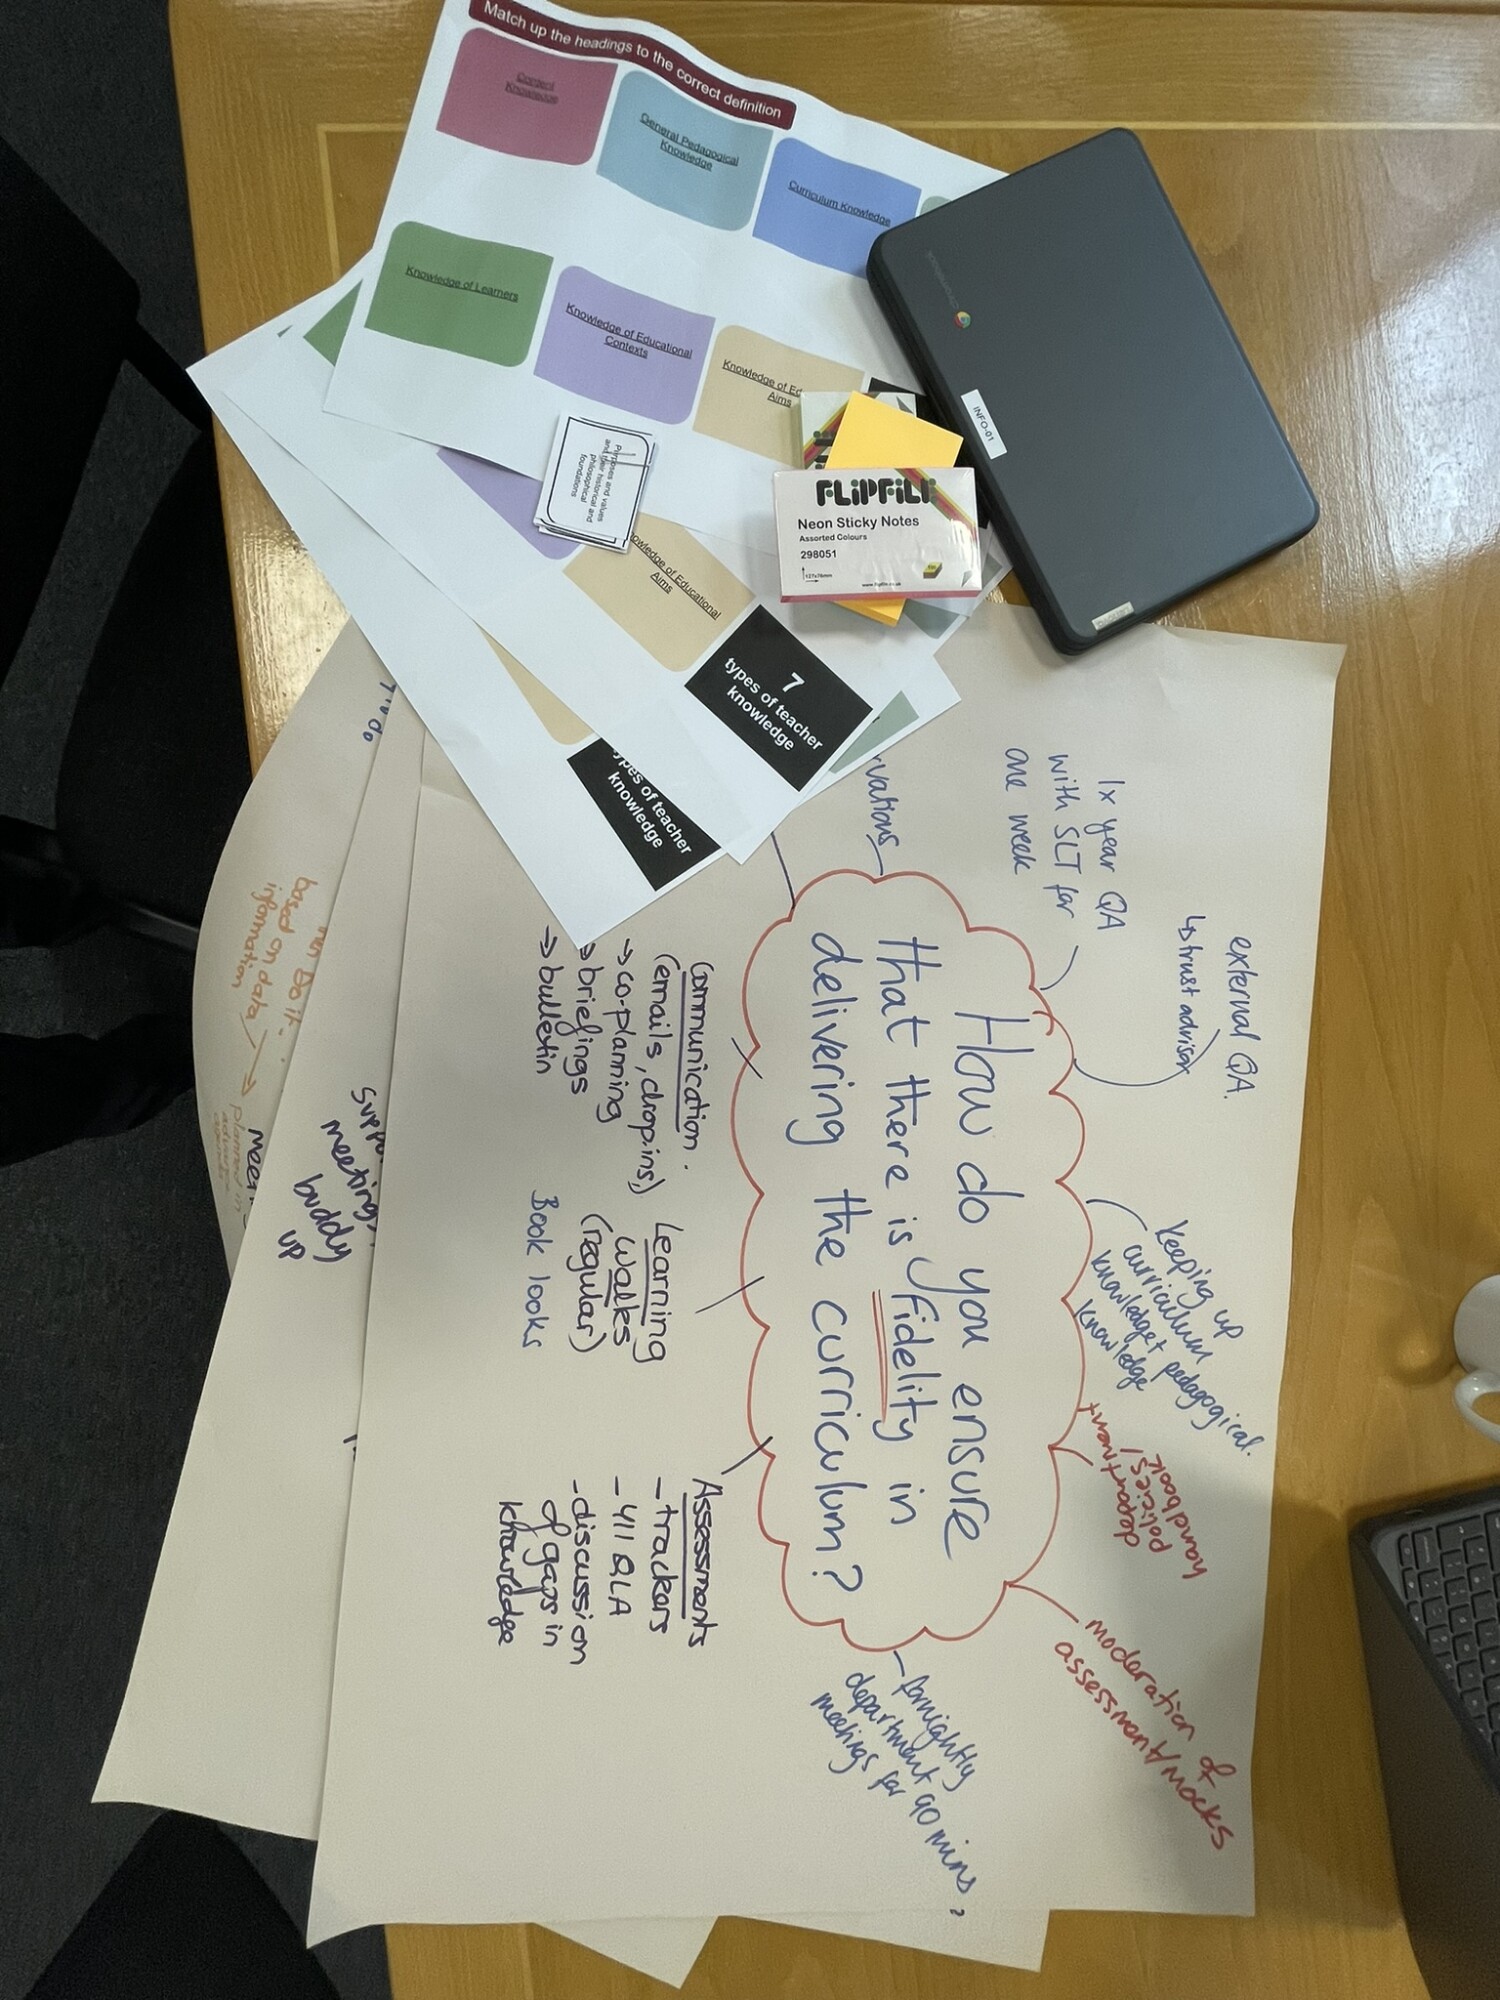 Match up the headings to the correct definition
Content
Knowledge
General Pedagogical
Knowledge
Curriculum Knowledge
Knowledge of Learners
Knowledge of Educational
Contexts
Knowledge of Ed
Aims
Purposes and values
and their historical and
philosophical
foundations
FLIPFILE
Neon Sticky Notes
Assorted Colours
298051
127x76mm
www.flipfile.co.uk
INFO-01
chromebook
owledge of Educational
Aims
7
types of teacher
knowledge
ypes of teacher
knowledge
How do you ensure
that there is fidelity in
delivering the curriculum?
vations
1x year QA
with SLT for
one week
external QA.
↳ trust advisor
Keeping up
curriculum
knowledge + pedagogical
knowledge
department
policies/
handbook
moderation of
assessment/mocks
fornightly
department 90 mins
meetings for
?
Communication.
(emails, drop.ins,)
→ co-planning
→ briefings
→ bulletin
Learning
walks
(regular)
Book looks
Assessments
- trackers
- y11 QLA
- discussion
of gaps in
knowledge
Supp
meeting
buddy
up
Do it
based on data
information
→ planned in
advance
Meet